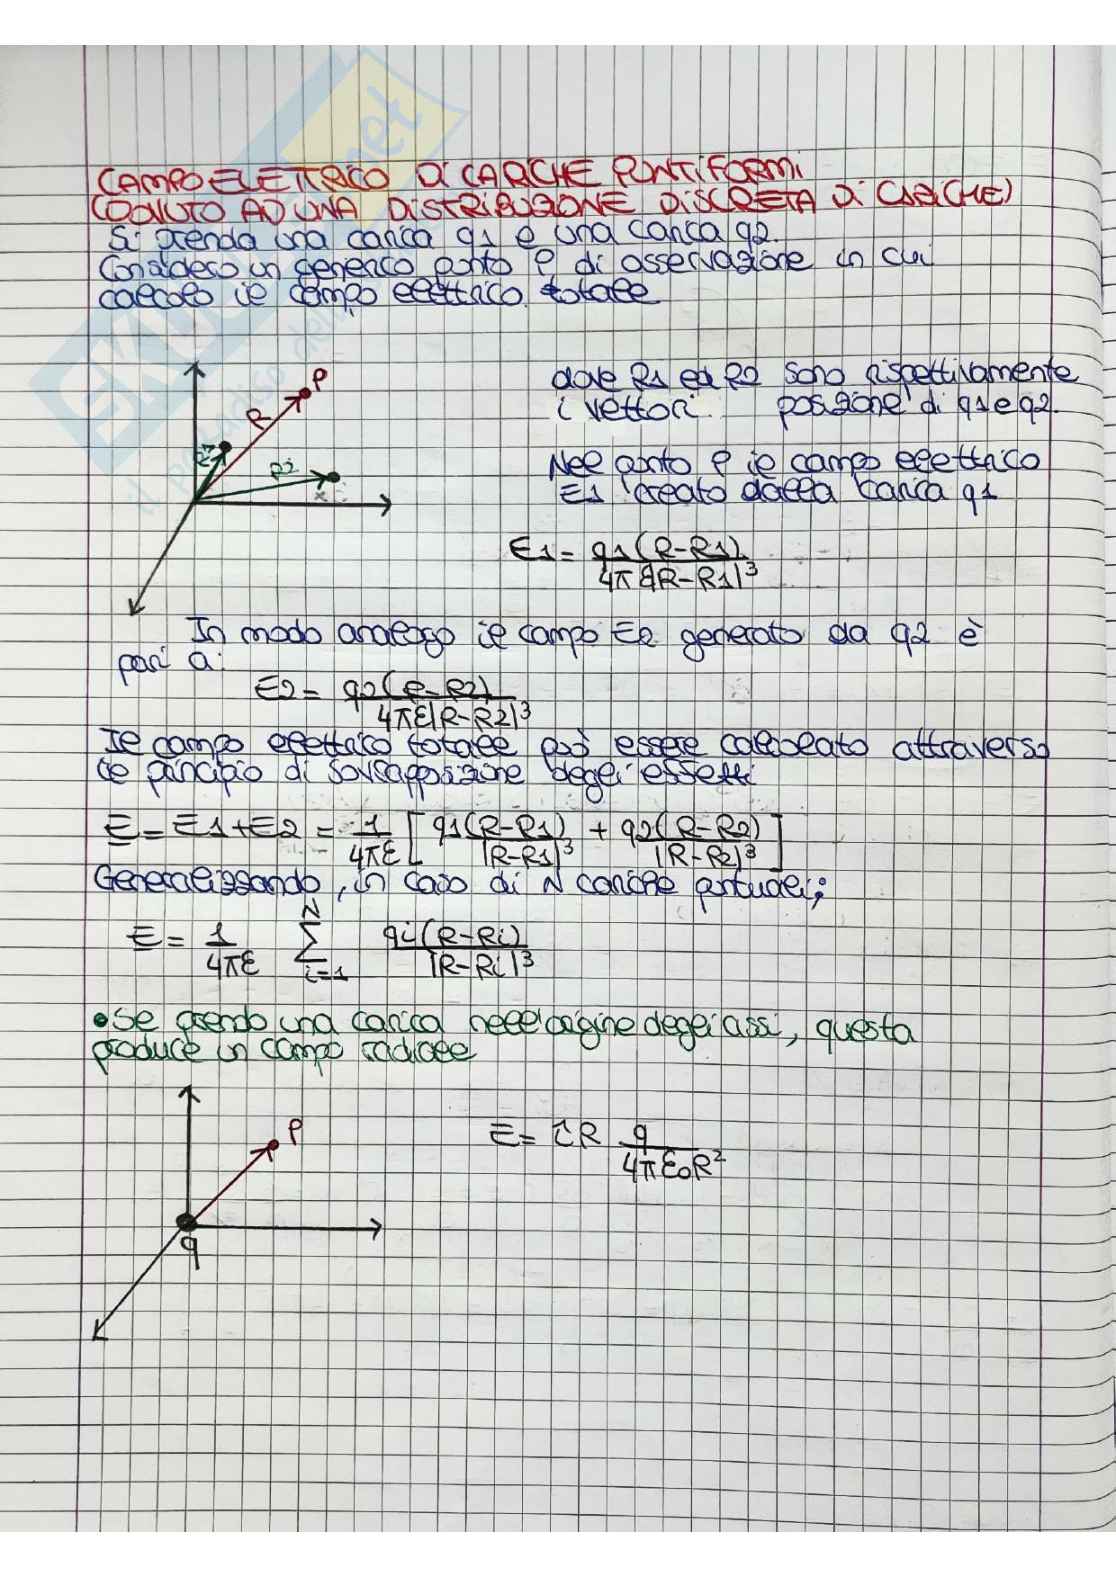 CAMPO ELETTRICO DI CARICHE PUNTIFORMI
(DOVUTO AD UNA DISTRIBUZIONE DISCRETA DI CARICHE)
Si prenda una carica q1 e una carica q2.
Considero un generico punto P di osservazione in cui
calcolo il campo elettrico totale
P
R
R1
R2
dove R1 ed R2 sono rispettivamente
i vettori posizione di q1 e q2.
Nel punto P il campo elettrico
E1 creato dalla carica q1
E1 = q1(R-R1) / 4πε|R-R1|³
In modo analogo il campo E2 generato da q2 è
pari a:
E2 = q2(R-R2) / 4πε|R-R2|³
Il campo elettrico totale può essere calcolato attraverso
il principio di sovrapposizione degli effetti
E = E1+E2 = 1/4πε [ q1(R-R1)/|R-R1|³ + q2(R-R2)/|R-R2|³ ]
Generalizzando, in caso di N cariche puntuali;
E = 1/4πε N∑i=1 qi(R-Ri)/|R-Ri|³
• Se prendo una carica nell'origine degli assi, questa
produce un campo radiale
P
q
E = îR q/4πε0R²